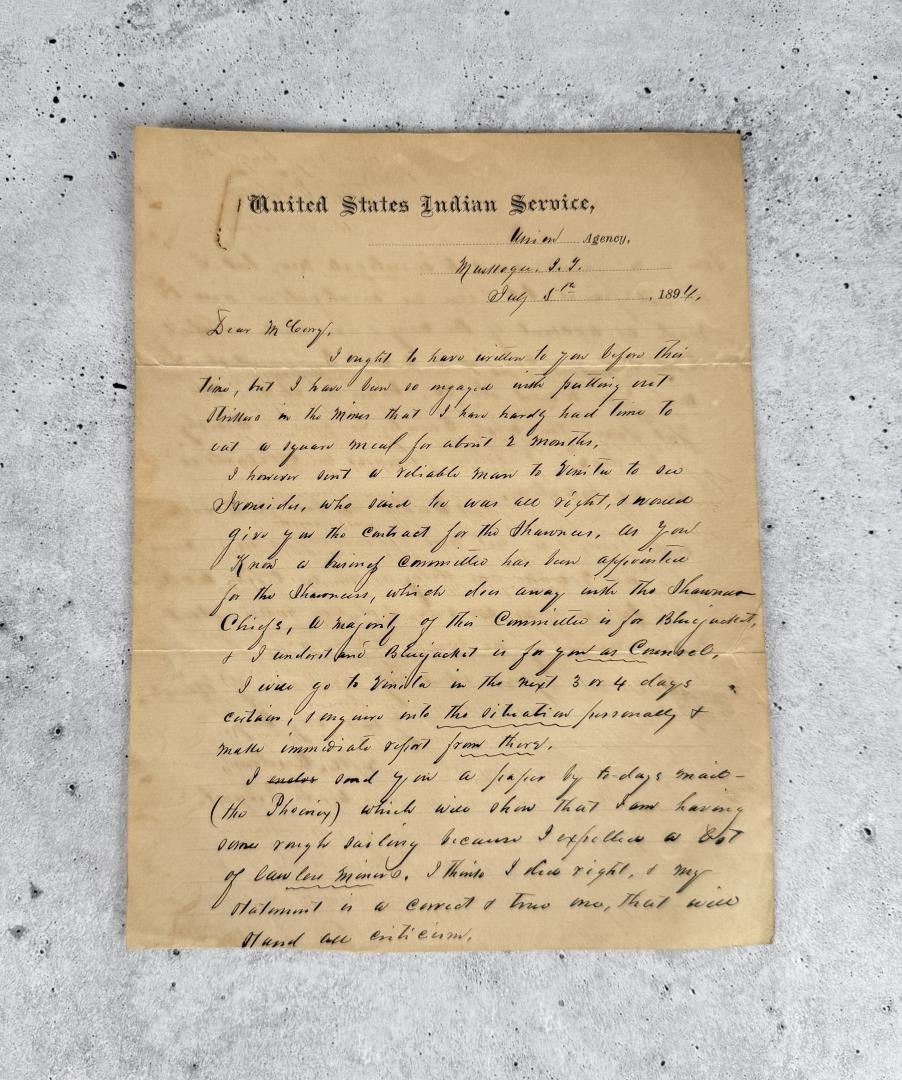 United States Indian Service,
Union Agency,
Muskogee, I. T.
July 8th, 1894.
Dear McCorry.
I ought to have written to you before this
time, but I have been so engaged with putting out
strikers in the mines that I have hardly had time to
eat a square meal for about 2 months.
I however sent a reliable man to Vinita to see
Ironsides, who said he was all right, & would
give you the contract for the Shawnees. As you
Know a business Committee has been appointed
for the Shawnees, which does away with the Shawnee
Chiefs, a majority of this Committee is for Bluejacket,
& I understand Bluejacket is for you as Counsel.
I will go to Vinita in the next 3 or 4 days
certain, & enquire into the situation personally &
make immediate report from there.
I send you a paper by to-days mail -
(the Phoenix) which will show that I am having
some rough sailing because I expelled a lot
of lawless miners. I think I did right, & my
statement is a correct & true one, that will
stand all criticism.